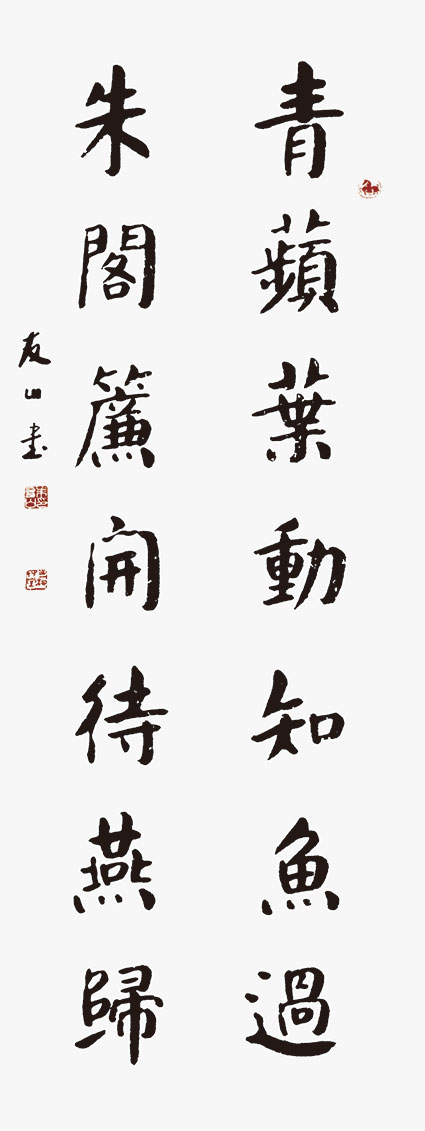 青蘋葉動知魚過
朱閣簾開待燕歸
友山書